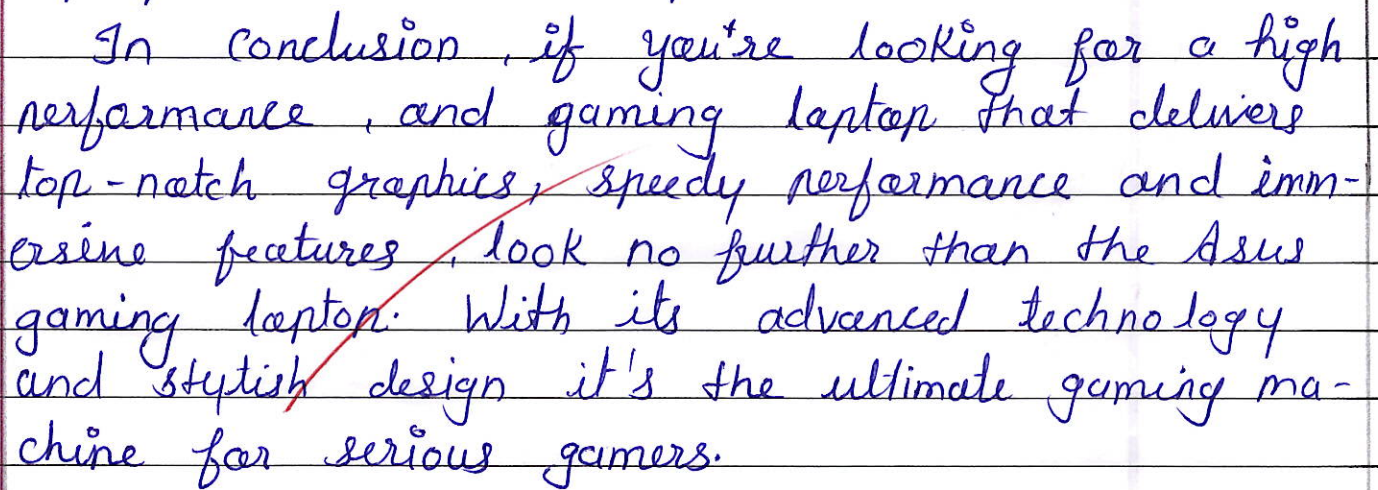 In conclusion, if you're looking for a high
performance, and gaming laptop that delivers
top-notch graphics, speedy performance and imm-
ersine features, look no further than the Asus
gaming laptop. With its advanced technology
and stytish design it's the ultimate gaming ma-
chine for serious gamers.